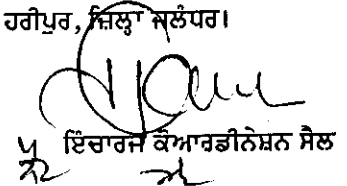 ਹਰੀਪੁਰ, ਜ਼ਿਲ੍ਹਾ ਜਲੰਧਰ।
ਇੰਚਾਰਜ ਕੋਆਰਡੀਨੇਸ਼ਨ ਸੈਲ